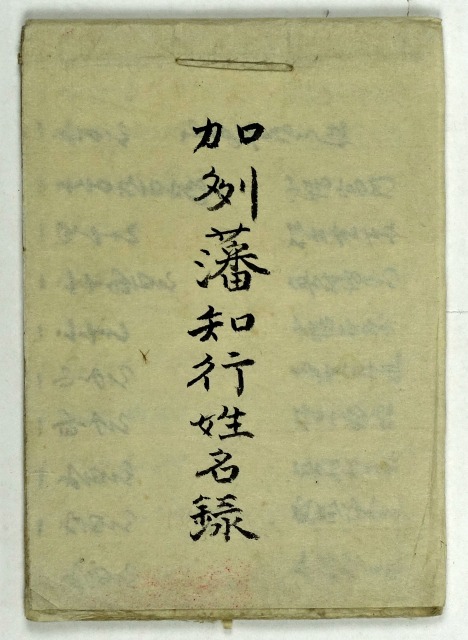 加刕藩知行姓名録